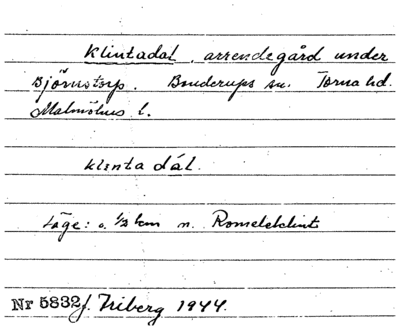 Klintadal, arrendegård under
Björnstorp. Bonderups sn. Torna hd.
Malmöhus l.
klinta dál.
Läge: c. 1/2 km n. Romeleklint
Nr 5832 J. Friberg 1944.